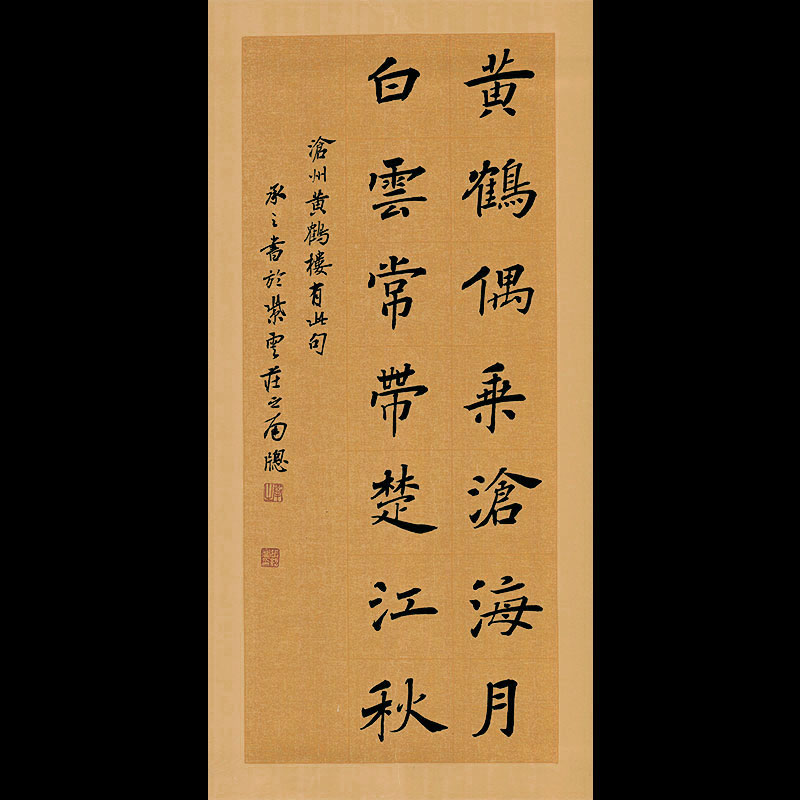 黄鶴偶乗滄海月
白雲常帶楚江秋
滄州黄鶴樓有此句
承之書於紫雲莊之南牕